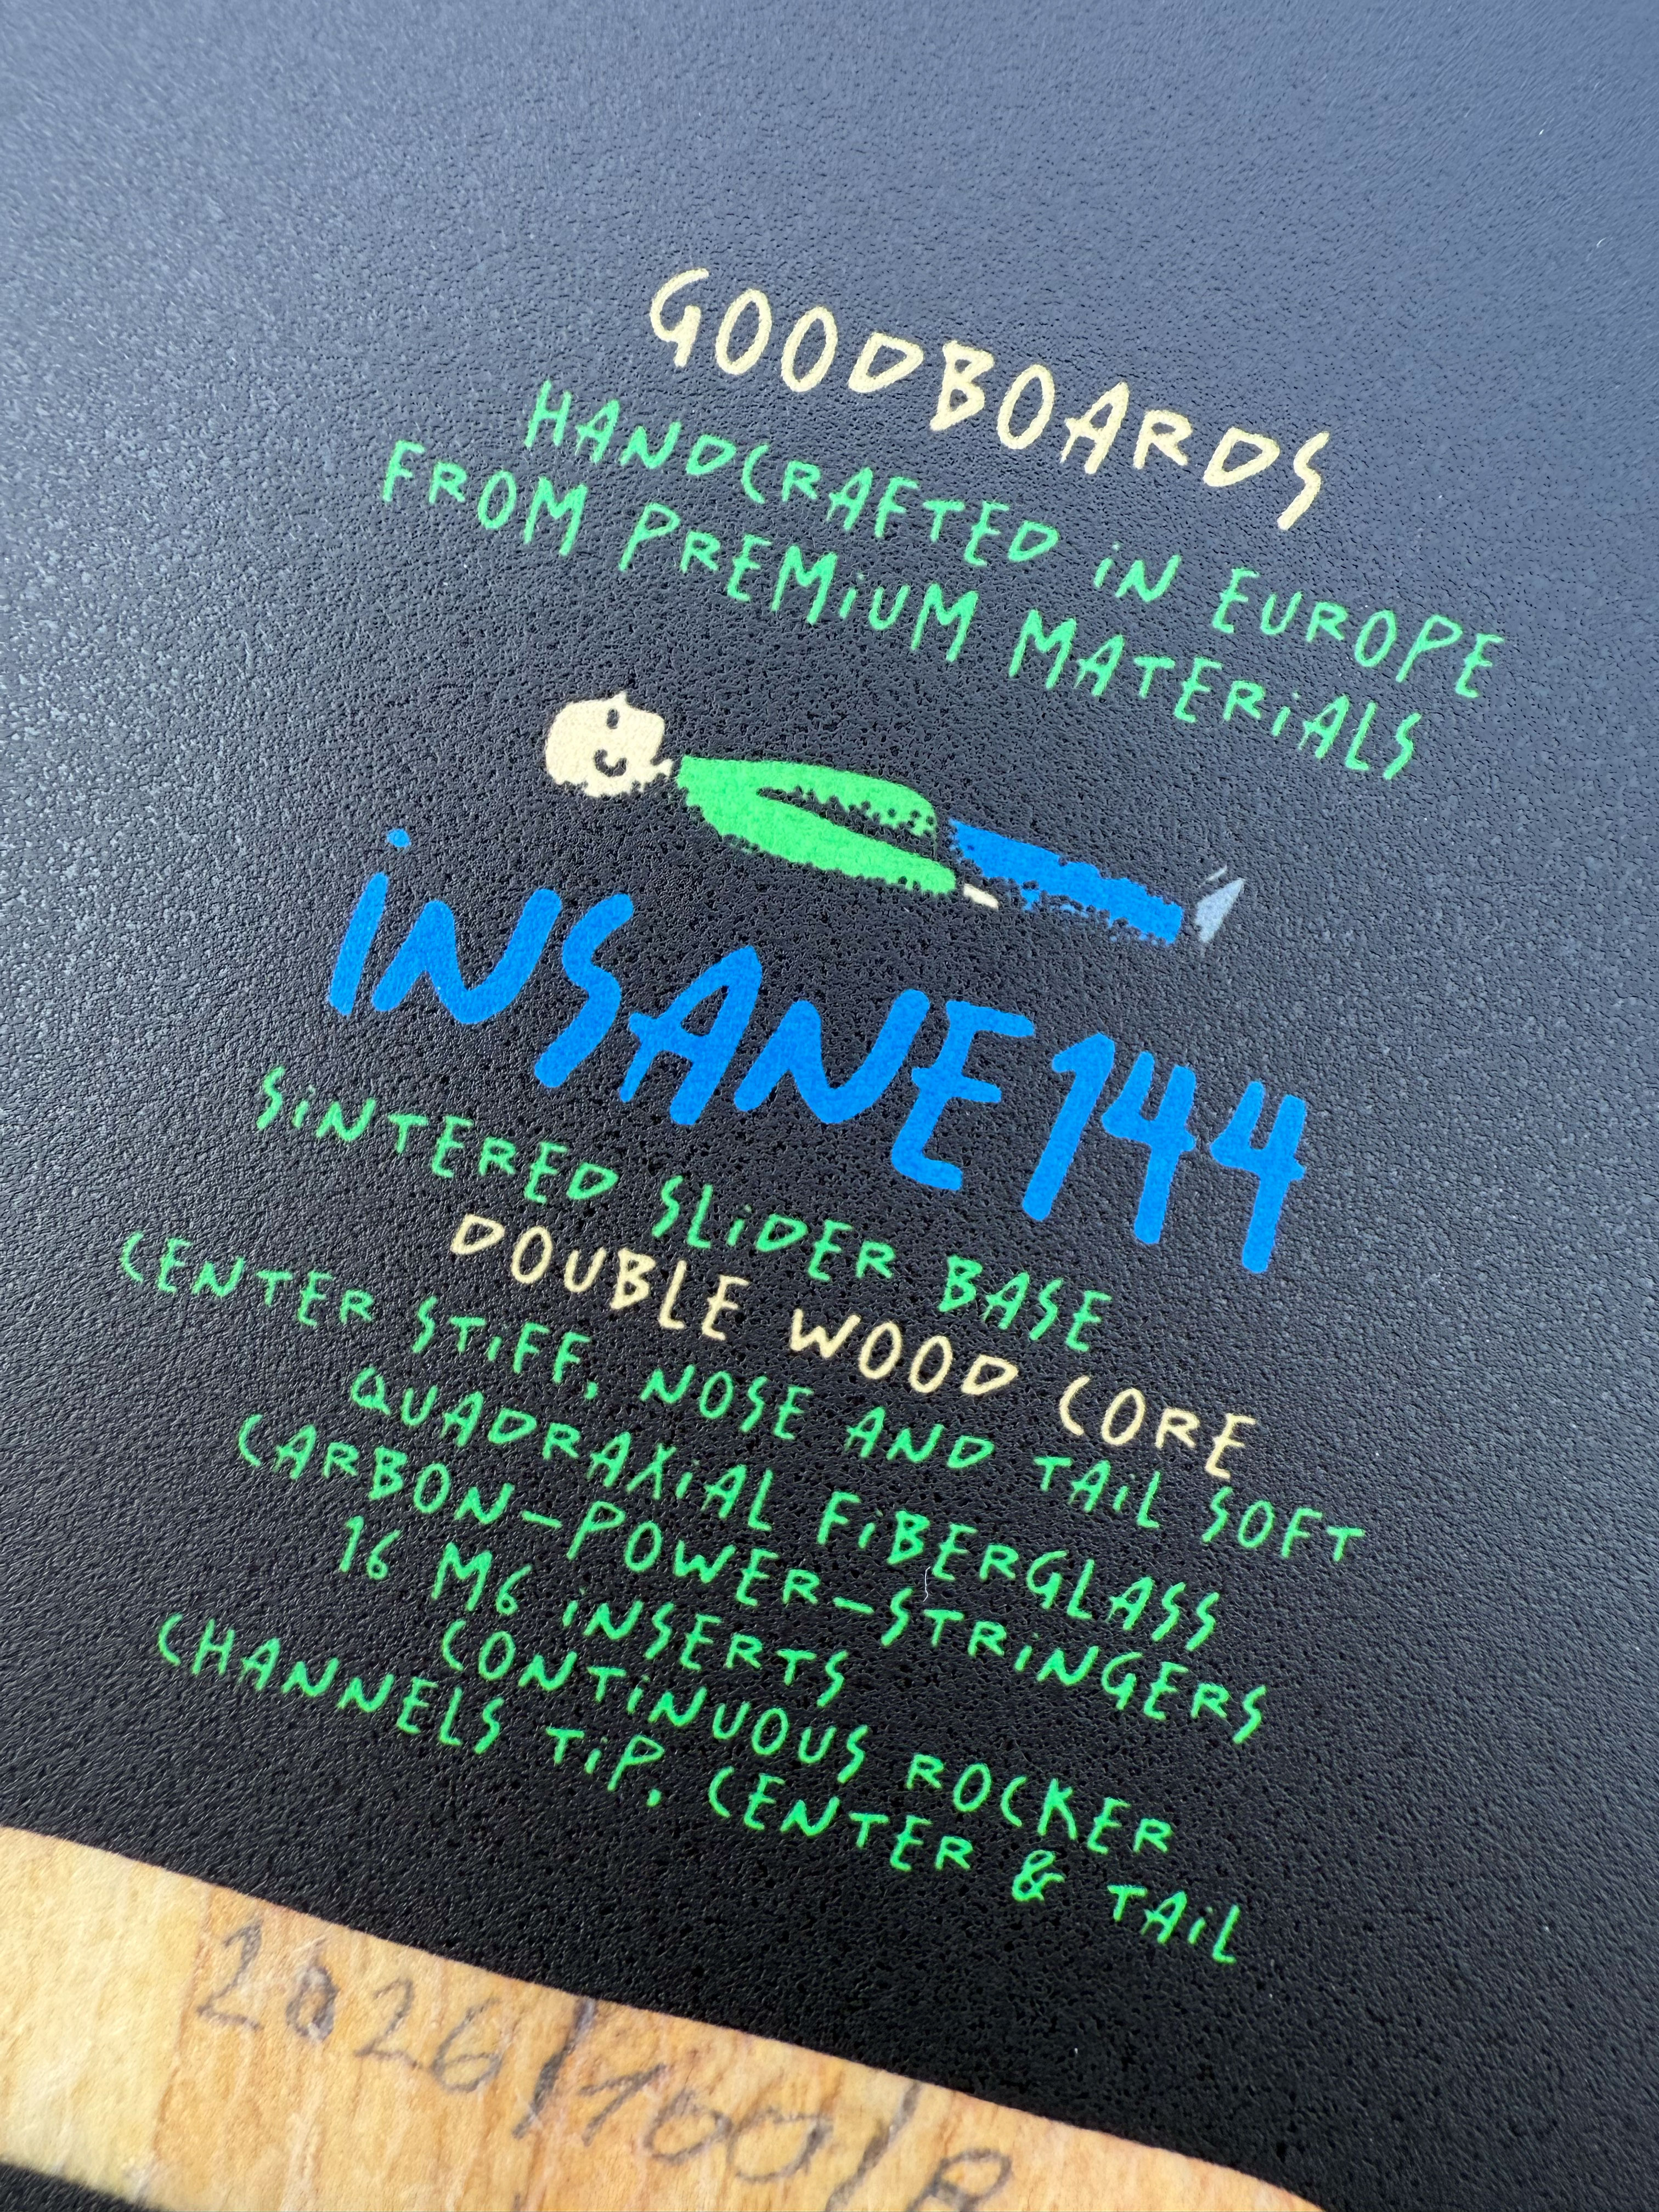 GOODBOARDS
HANDCRAFTED iN EUROPE
FROM PREMiUM MATERiALS
iNSANE 144
SiNTERED SLiDER BASE
DOUBLE WOOD CORE
CENTER STiFF, NOSE AND TAiL SOFT
QUADRAXiAL FiBERGLASS
CARBON-POWER-STRiNGERS
16 M6 iNSERTS
CONTiNUOUS ROCKER
CHANNELS TiP, CENTER & TAiL
2026/160/